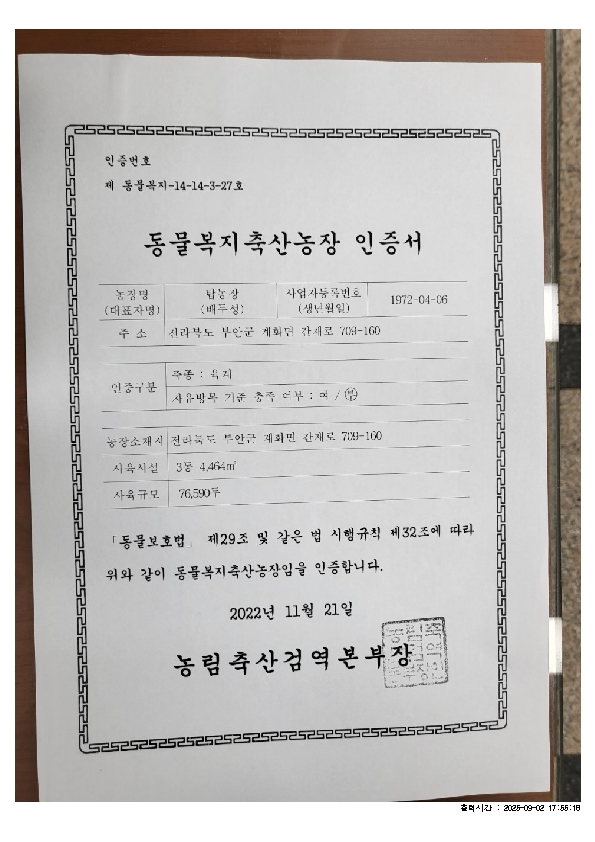 인증번호
제 동물복지-14-14-3-27호
동물복지축산농장 인증서
농장명 (대표자명) 탑농장 (배두성) 사업자등록번호 (생년월일) 1972-04-06
주 소 전라북도 부안군 계화면 간재로 709-160
인증구분 축종 : 육계
자유방목 기준 충족 여부 : 여 / 부
농장소재지 전라북도 부안군 계화면 간재로 709-160
사육시설 3동 4,464㎡
사육규모 76,590두
「동물보호법」 제29조 및 같은 법 시행규칙 제32조에 따라
위와 같이 동물복지축산농장임을 인증합니다.
2022년 11월 21일
농림축산검역본부장
출력시간 : 2025-09-02 17:55:18